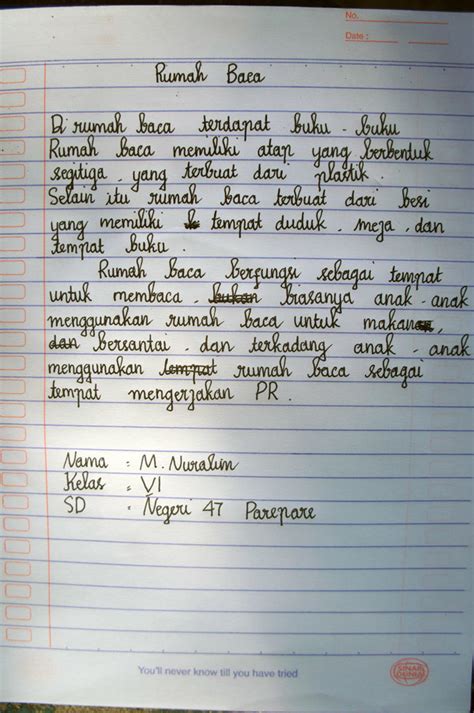 No.
Date :
Rumah Baca
Di rumah baca terdapat buku - buku
Rumah baca memiliki atap yang berbentuk
segitiga, yang terbuat dari plastik.
Selain itu rumah baca terbuat dari besi
yang memiliki tempat duduk, meja, dan
tempat buku.
Rumah Baca berfungsi sebagai tempat
untuk membaca, bukan biasanya anak-anak
menggunakan rumah baca untuk makan,
dan bersantai, dan terkadang anak-anak
menggunakan tempat rumah baca sebagai
tempat mengerjakan PR.
Nama : M. Nuralim
Kelas : VI
SD : Negeri 47 Parepare
You'll never know till you have tried
SINAR DUNIA